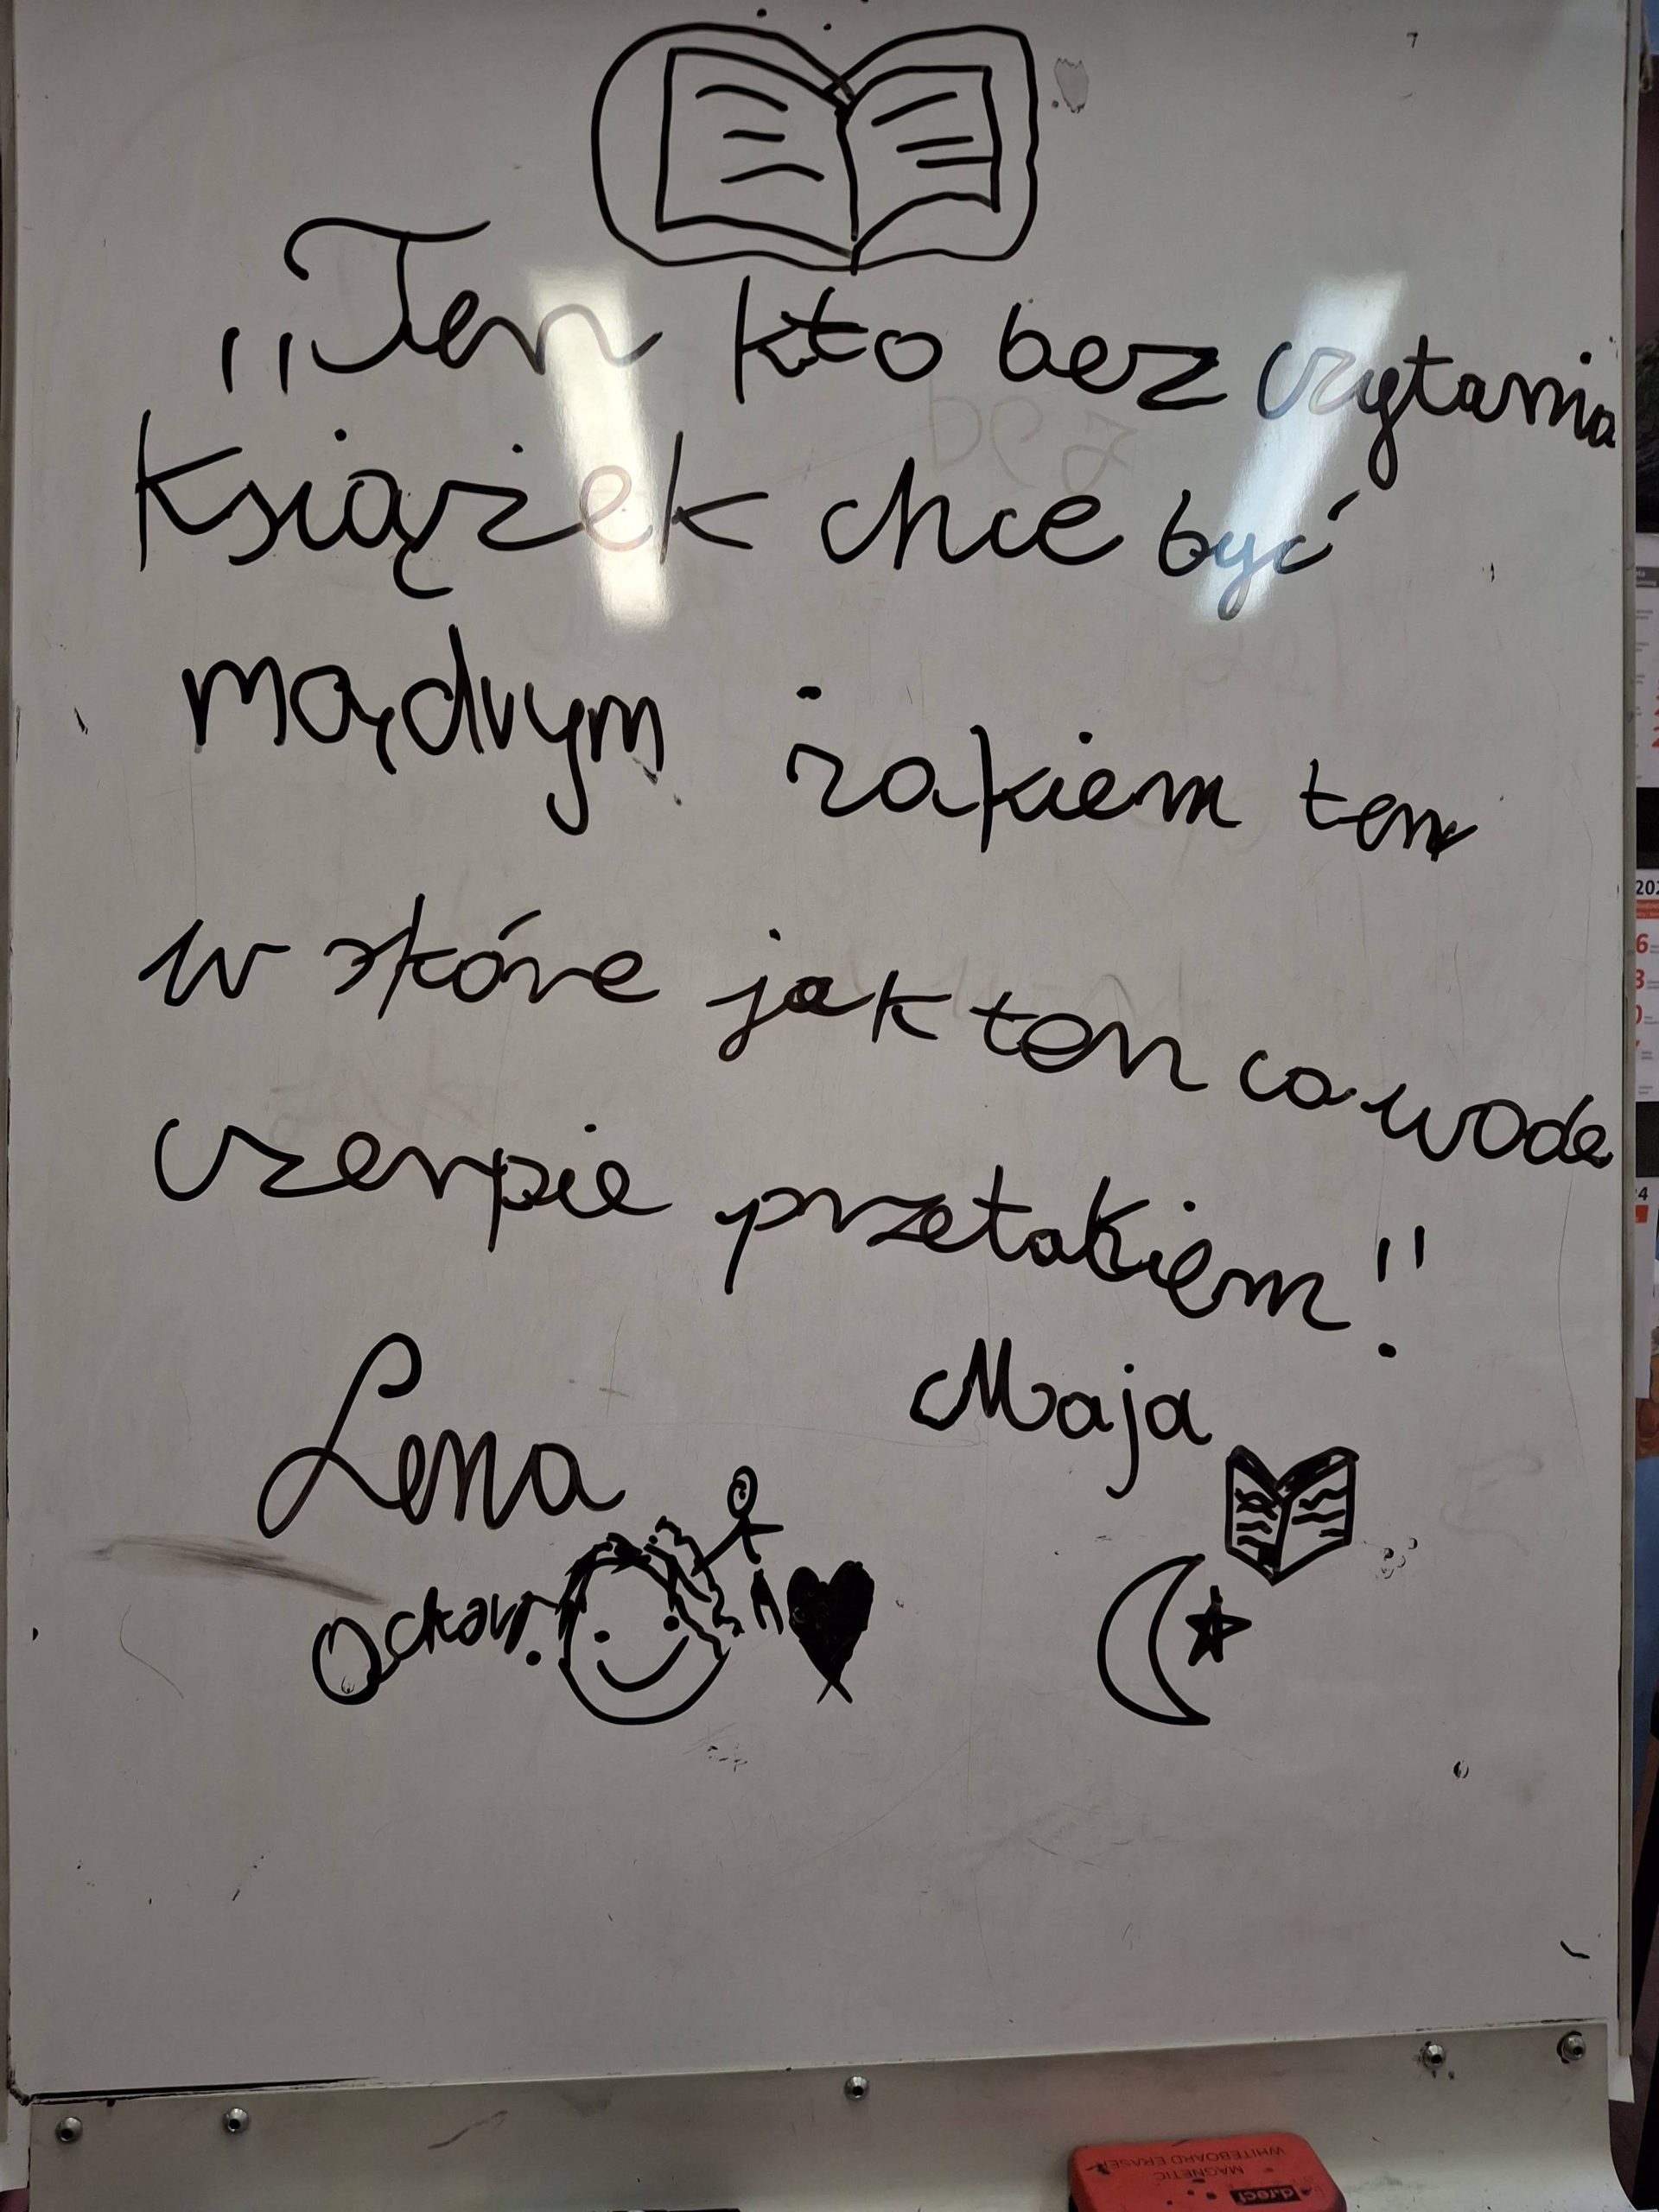 „Ten kto bez czytania
książek chce być
mądrym żakiem ten
w skóre jak ten co wode
czerpie przetakiem!"
Lena
Maja
MAGNETIC
WHITEBOARD ERASER